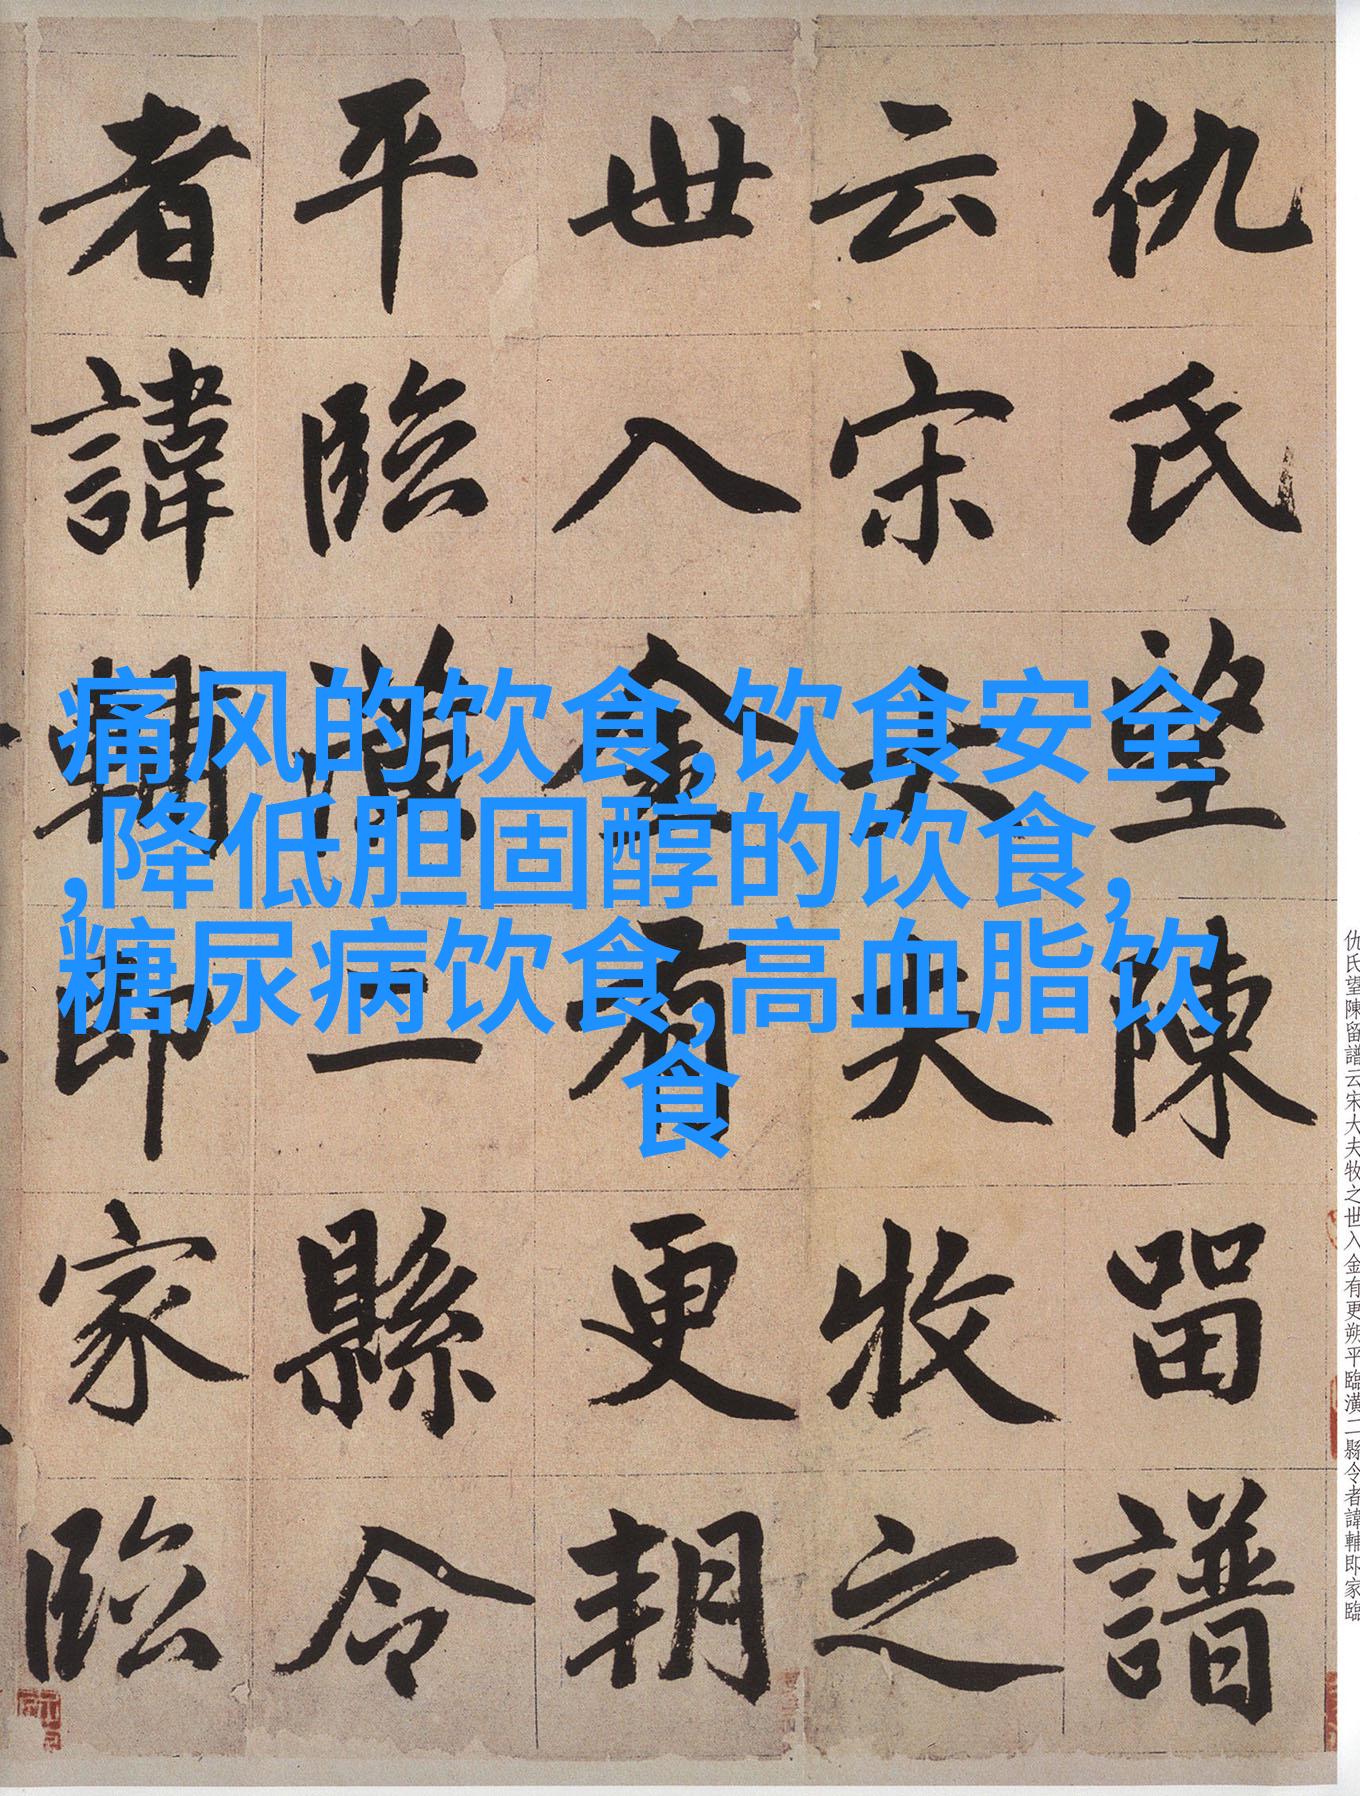 仇氏望陳留譜
云宋大夫牧之
世入金有更朔
平臨潢二縣令
者諱輔即家臨
痛风的饮食,饮食安全
,降低胆固醇的饮食,
糖尿病饮食,高血脂饮
食
仇氏望陳留譜云宋大夫牧之世入金有更朔平臨潢二縣令者諱輔即家臨